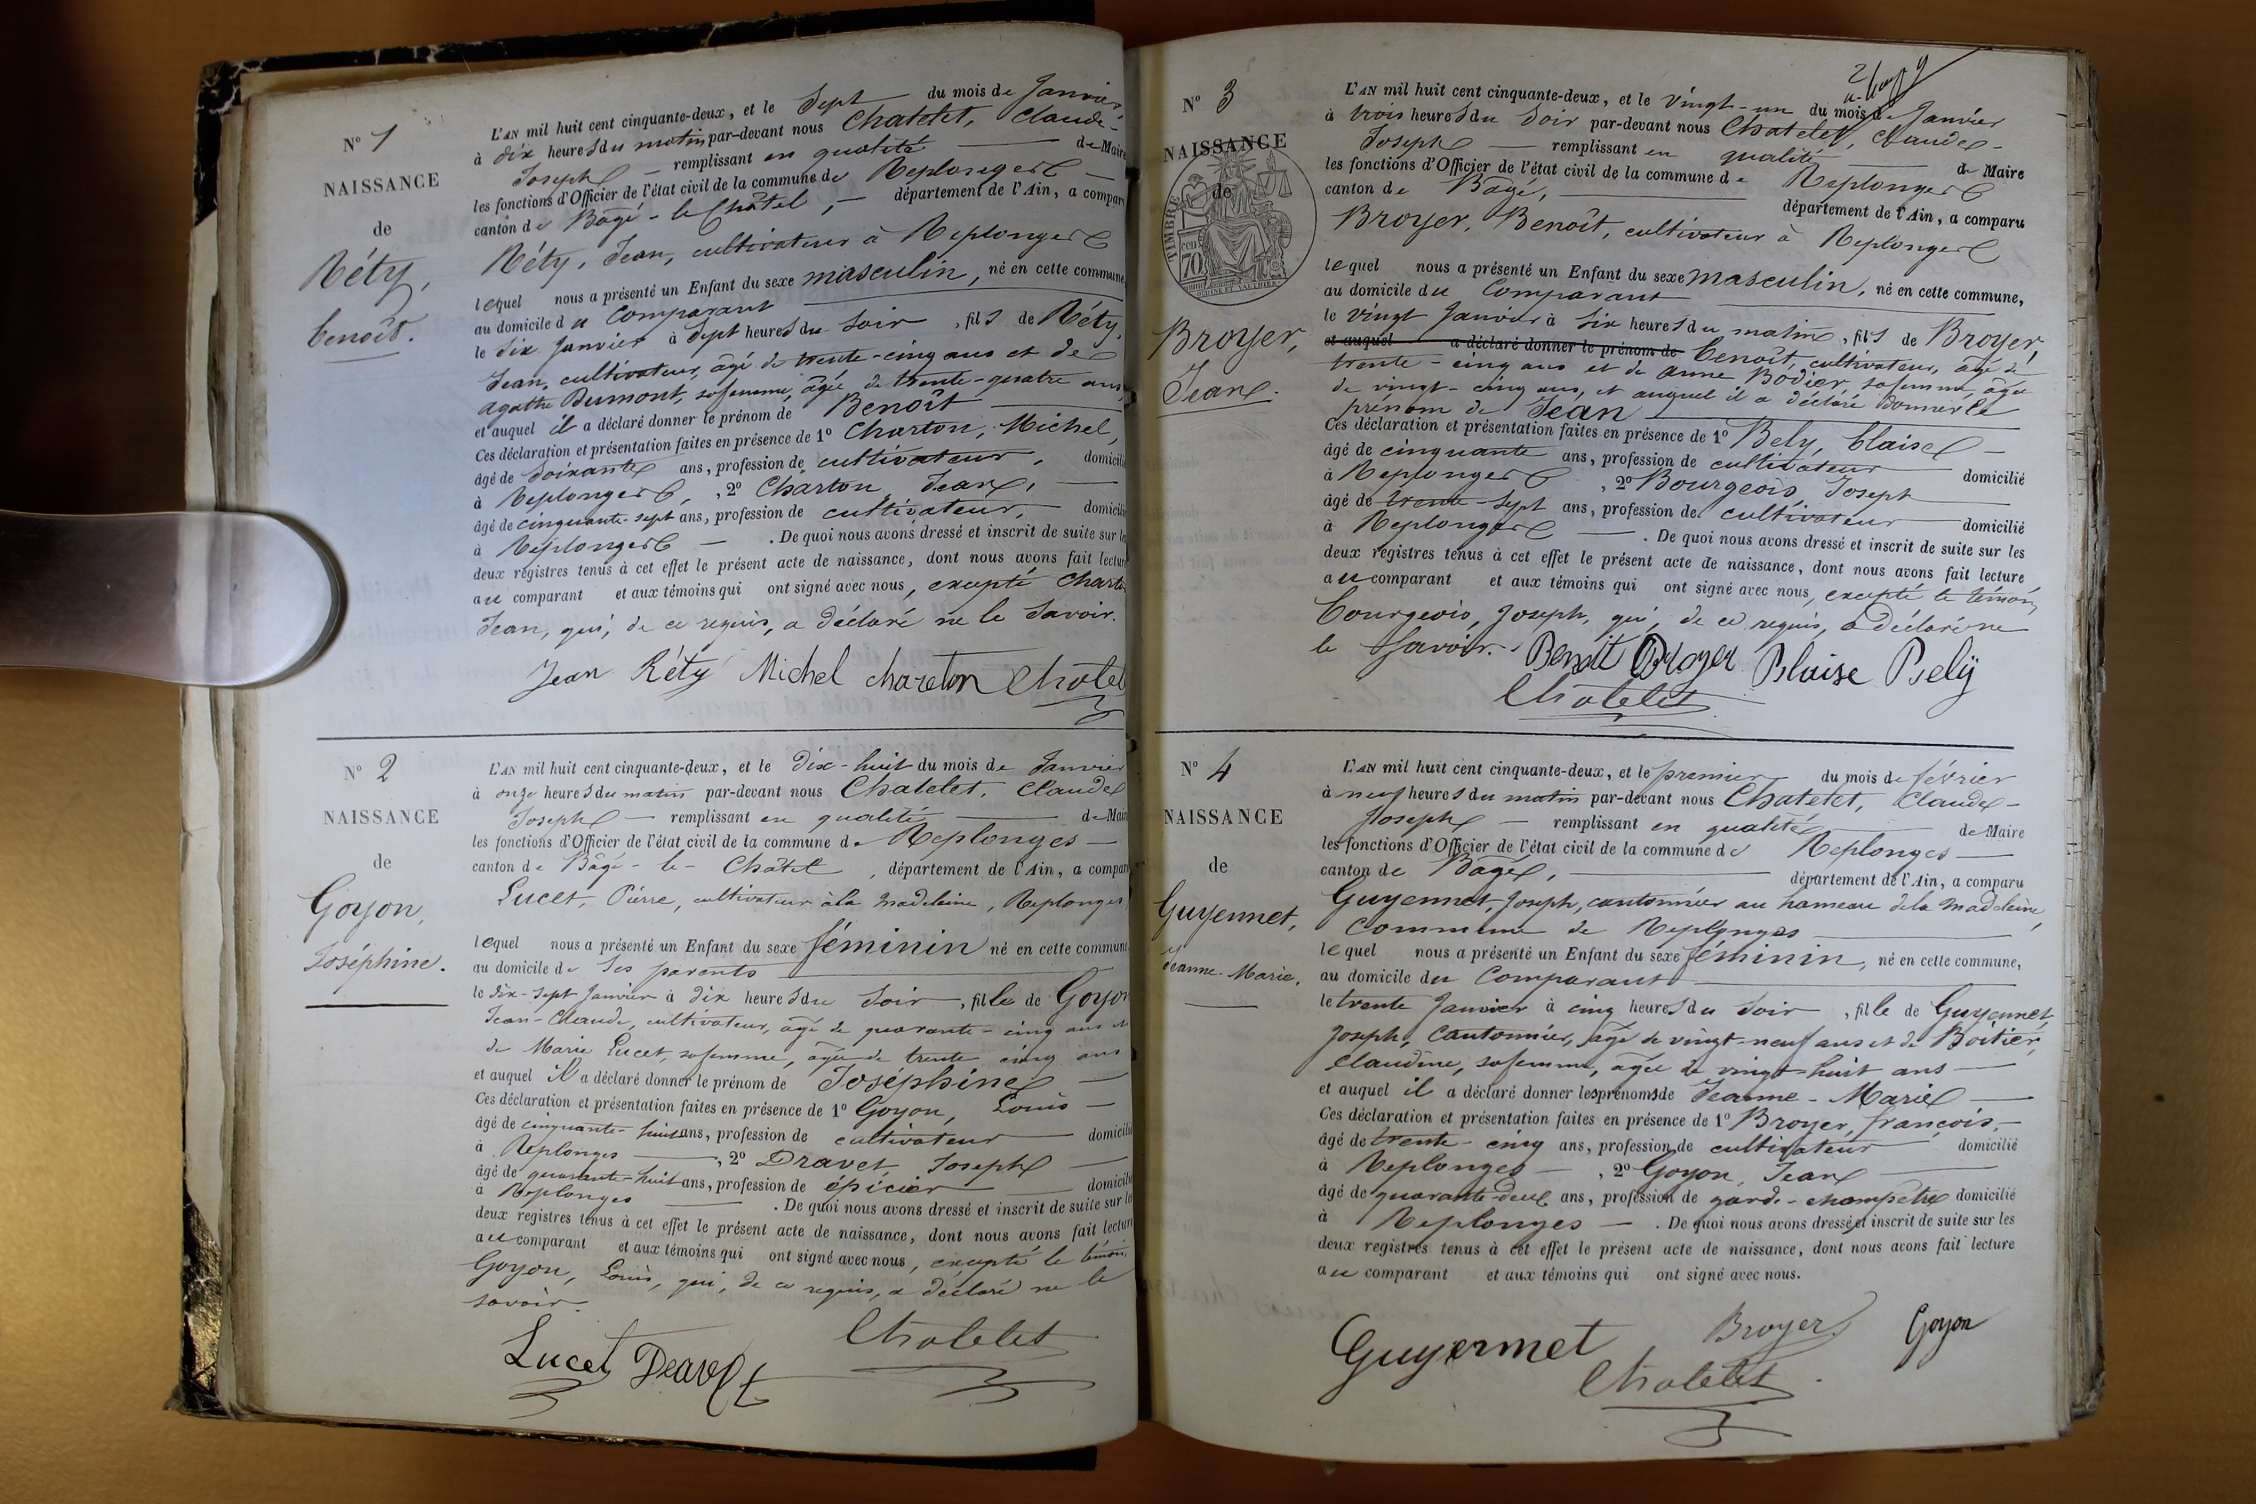 N° 1
NAISSANCE
de
Réty,
benoît.
L'AN mil huit cent cinquante-deux, et le Sept du mois de Janvier,
à dix heures du matin par-devant nous Chatelet, Claude-
Joseph — remplissant en qualité — de Maire
les fonctions d'Officier de l'état civil de la commune de Replonges —
canton de Bâgé-le-Châtel, — département de l'Ain, a comparu
Réty, Jean, cultivateur à Replonges
lequel nous a présenté un Enfant du sexe masculin, né en cette commune
au domicile du Comparant
le Six Janvier à Sept heures du Soir, fils de Réty,
Jean, cultivateur, âgé de trente-cinq ans et de
Agathe Dumont, sa femme, âgée de trente-quatre ans,
et auquel il a déclaré donner le prénom de Benoît
Ces déclaration et présentation faites en présence de 1° Charton, Michel,
âgé de Soixante ans, profession de cultivateur, domicilié
à Replonges, 2° Charton, Jean, —
âgé de cinquante-sept ans, profession de cultivateur, domicilié
à Replonges — . De quoi nous avons dressé et inscrit de suite sur les
deux registres tenus à cet effet le présent acte de naissance, dont nous avons fait lecture
au comparant et aux témoins qui ont signé avec nous, excepté Charton
Jean, qui, de ce requis, a déclaré ne le Savoir.
Jean Réty Michel chareton Chatelet
N° 2
NAISSANCE
de
Goyon,
Joséphine.
L'AN mil huit cent cinquante-deux, et le dix-huit du mois de Janvier
à onze heures du matin par-devant nous Chatelet, Claude
Joseph — remplissant en qualité — de Maire
les fonctions d'Officier de l'état civil de la commune de Replonges —
canton de Bâgé-le-Châtel, département de l'Ain, a comparu
Lucet, Pierre, cultivateur à la Madeleine, Replonges
lequel nous a présenté un Enfant du sexe féminin né en cette commune
au domicile de Ses parents
le dix-sept Janvier à dix heures du Soir, fille de Goyon
Jean-Claude, cultivateur, âgé de quarante-cinq ans et
de Marie Lucet, sa femme, âgée de trente cinq ans
et auquel il a déclaré donner le prénom de Joséphine —
Ces déclaration et présentation faites en présence de 1° Goyon, Louis —
âgé de cinquante-huit ans, profession de cultivateur — domicilié
à Replonges —, 2° Dravet, Joseph —
âgé de quarante-huit ans, profession de épicier — domicilié
à Replonges — . De quoi nous avons dressé et inscrit de suite sur les
deux registres tenus à cet effet le présent acte de naissance, dont nous avons fait lecture
au comparant et aux témoins qui ont signé avec nous, excepté le témoin
Goyon, Louis, qui, de ce requis, a déclaré ne le
savoir.
Chatelet
Lucet Dravet
N° 3
NAISSANCE
de
TIMBRE
cen
70
Broyer,
Jean.
L'AN mil huit cent cinquante-deux, et le vingt-un du mois de Janvier
à trois heures du Soir par-devant nous Chatelet, Claude-
Joseph — remplissant en qualité — de Maire
les fonctions d'Officier de l'état civil de la commune de Replonges
canton de Bâgé, — département de l'Ain, a comparu
Broyer, Benoît, cultivateur à Replonges
lequel nous a présenté un Enfant du sexe masculin, né en cette commune,
au domicile du Comparant
le Vingt Janvier à Six heures du matin, fils de Broyer,
et auquel a déclaré donner le prénom de benoît, cultivateur, âgé de
trente-cinq ans et de anne Bodier, sa femme âgée
de vingt-cinq ans, et auquel il a déclaré donner le
prénom de Jean
Ces déclaration et présentation faites en présence de 1° Bely, blaise —
âgé de cinquante ans, profession de cultivateur domicilié
à Replonges, 2° Bourgeois, Joseph
âgé de trente-Sept ans, profession de cultivateur domicilié
à Replonges — . De quoi nous avons dressé et inscrit de suite sur les
deux registres tenus à cet effet le présent acte de naissance, dont nous avons fait lecture
au comparant et aux témoins qui ont signé avec nous, excepté le témoin,
bourgeois, Joseph, qui, de ce requis, a déclaré ne
le Savoir. Benoît Broyer Blaise Bely
Chatelet
N° 4
NAISSANCE
de
Guyennet,
Jeanne-Marie,
L'AN mil huit cent cinquante-deux, et le premier du mois de février
à neuf heures du matin par-devant nous Chatelet, Claude-
Joseph — remplissant en qualité — de Maire
les fonctions d'Officier de l'état civil de la commune de Replonges —
canton de Bâgé, — département de l'Ain, a comparu
Guyennet, Joseph, cantonnier au hameau de la Madeleine,
Commune de Replonges
lequel nous a présenté un Enfant du sexe féminin, né en cette commune,
au domicile du Comparant
le trente Janvier à cinq heures du Soir, fille de Guyennet,
Joseph, Cantonnier, âgé de vingt-neuf ans et de Boitier,
Claudine, sa femme, âgée de vingt-huit ans —
et auquel il a déclaré donner les prénoms de Jeanne-Marie —
Ces déclaration et présentation faites en présence de 1° Broyer, françois, —
âgé de trente-cinq ans, profession de cultivateur domicilié
à Replonges —, 2° Goyon, Jean —
âgé de quarante-deux ans, profession de garde-champêtre domicilié
à Replonges — . De quoi nous avons dressé et inscrit de suite sur les
deux registres tenus à cet effet le présent acte de naissance, dont nous avons fait lecture
au comparant et aux témoins qui ont signé avec nous.
Guyennet Broyer Goyon
Chatelet